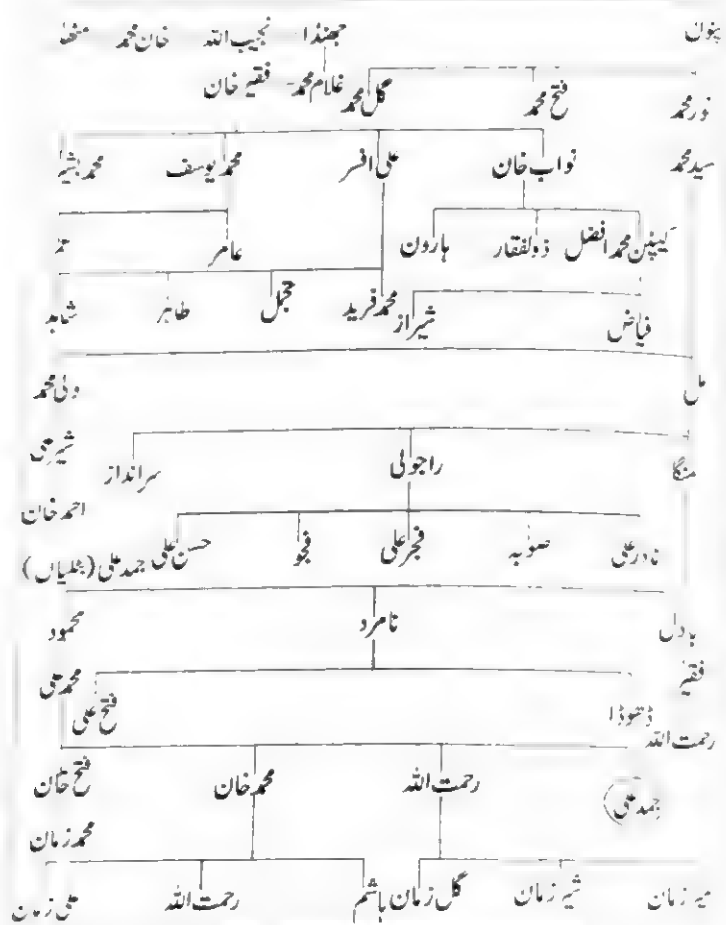 پنوں جھنڈا نجیب اللہ خان محمد
نور محمد فتح محمد گل محمد غلام محمد فقیر خان
سید محمد نواب خان علی افسر محمد یوسف محمد بشیر
کیپٹن محمد افضل ذولفقار ہارون عامر
فیاض شیراز محمد فرید حجبل طاہر شاہد
مل ولی محمد
منگا راجولی سرانداز شیر علی
احمد خان
نادر علی صوبہ فجر علی فجو حسن علی جمد علی (بٹلیاں)
بادل نامرد محمود
فقیر محمد علی
ڈھوڈا فتح علی
رحمت اللہ
جمد علی رحمت اللہ محمد خان فتح خان
محمد زمان
میر زمان شیر زمان گل زمان ہاشم رحمت اللہ علی زمان